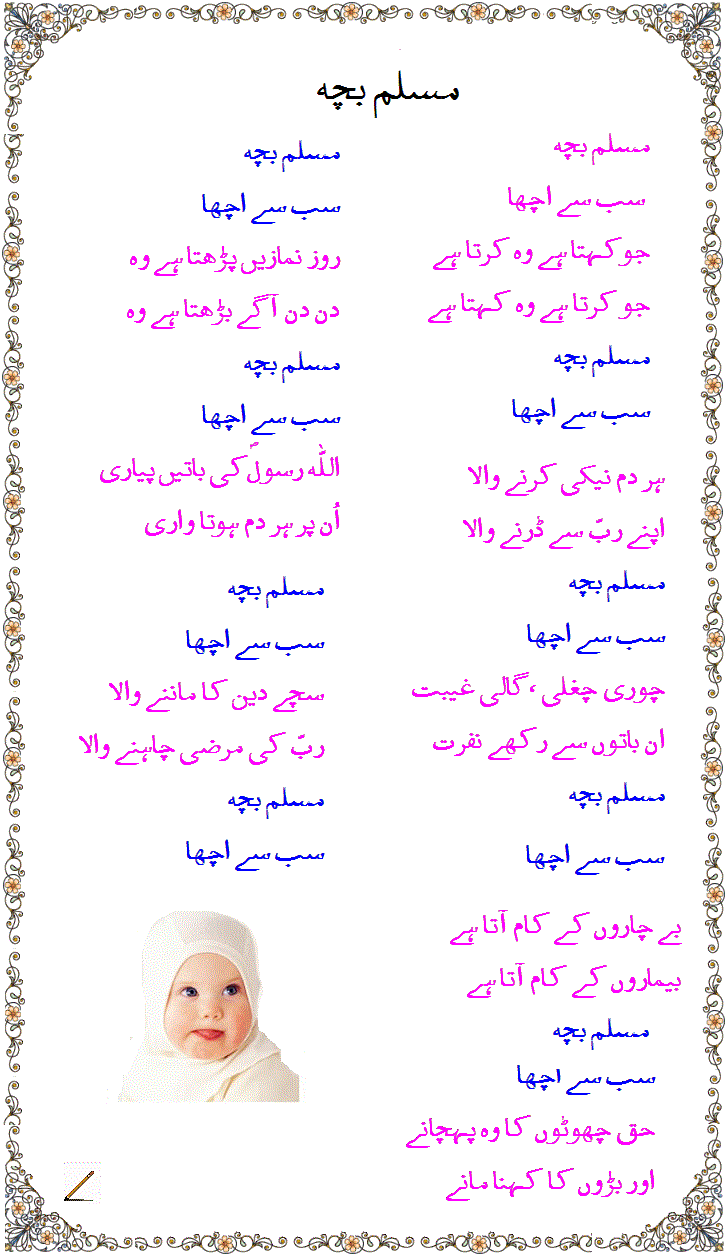 مسلم بچہ
مسلم بچہ
سب سے اچھا
جو کہتا ہے وہ کرتا ہے
جو کرتا ہے وہ کہتا ہے
مسلم بچہ
سب سے اچھا
ہر دم نیکی کرنے والا
اپنے ربّ سے ڈرنے والا
مسلم بچہ
سب سے اچھا
چوری چغلی ، گالی غیبت
ان باتوں سے رکھے نفرت
مسلم بچہ
سب سے اچھا
بے چاروں کے کام آتا ہے
بیماروں کے کام آتا ہے
مسلم بچہ
سب سے اچھا
حق چھوٹوں کا وہ پہچانے
اور بڑوں کا کہنا مانے
مسلم بچہ
سب سے اچھا
روز نمازیں پڑھتا ہے وہ
دن دن آگے بڑھتا ہے وہ
مسلم بچہ
سب سے اچھا
اللہ رسولؐ کی باتیں پیاری
اُن پر ہر دم ہوتا واری
مسلم بچہ
سب سے اچھا
سچے دین کا ماننے والا
ربّ کی مرضی چاہنے والا
مسلم بچہ
سب سے اچھا